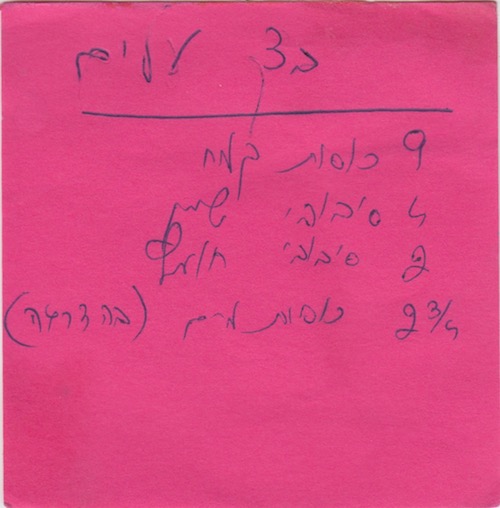 בצק עלים
9 כוסות קמח
4 סיבובי שמן
2 סיבובי חומץ
2 3/4 כוסות מים (בהדרגה)